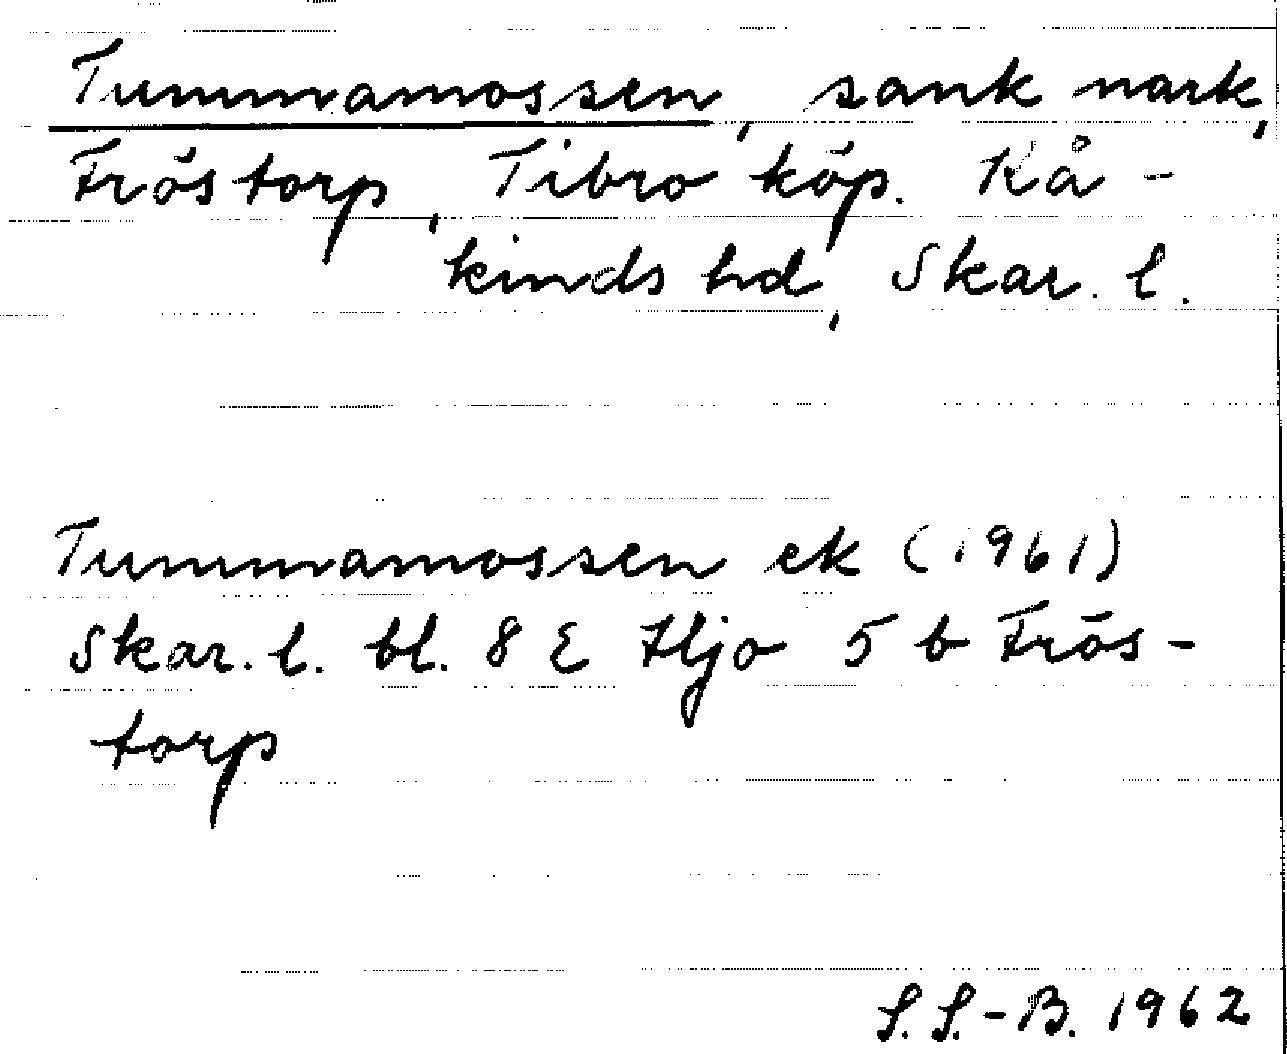 Tummamossen, sank mark,
Fröstorp, Tibro köp. Kå-
kinds hd, Skar. l.
Tummamossen ek (1961)
Skar. l. bl. 8 E Hjo 5 b Frös-
torp
S. S.-B. 1962